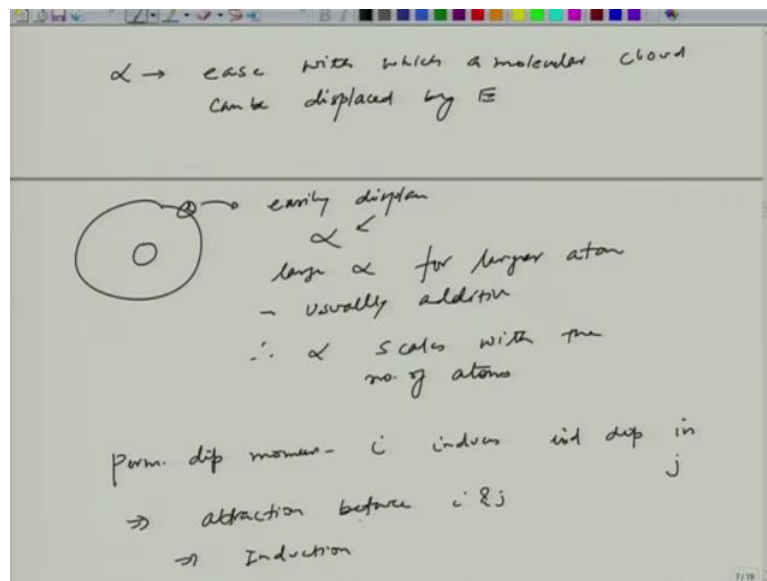 α → ease with which a molecular cloud
can be displaced by E
easily displace
α
large α for larger atom
- usually additive
∴ α scales with the
no. of atoms
Perm. dip moment i induces ind dip in
j
⇒ attraction between i & j
⇒ Induction
7/19